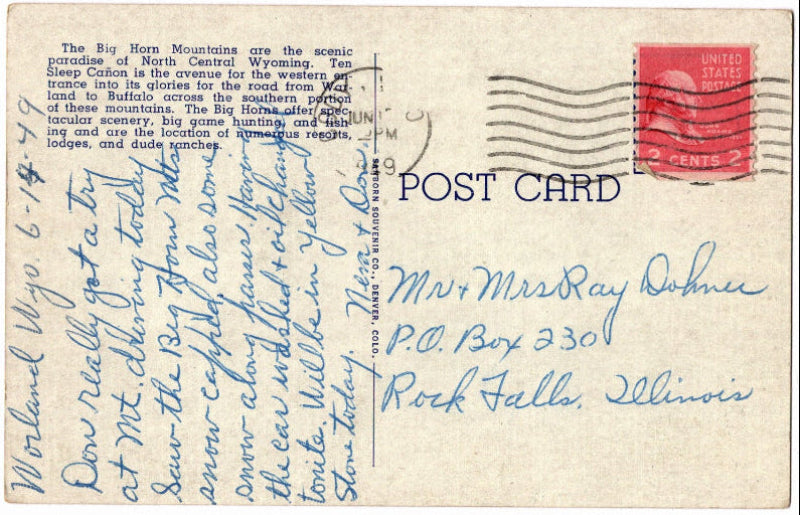 The Big Horn Mountains are the scenic
paradise of North Central Wyoming. Ten
Sleep Cañon is the avenue for the western en-
trance into its glories for the road from Wor-
land to Buffalo across the southern portion
of these mountains. The Big Horns offer spec-
tacular scenery, big game hunting, and fish-
ing and are the location of numerous resorts,
lodges, and dude ranches.
Worland Wyo. 6-14-49
Don really got a try
at Mt. driving today
Saw the Big Horn Mts
snow capped, also some
snow along passes. Having
the car washed + oil changed
tonite. Will be in Yellow
Stone today. Neva + Don.
SANBORN SOUVENIR CO., DENVER, COLO.
JUN
PM
UNITED
STATES
POSTAGE
2 CENTS 2
POST CARD
Mr + Mrs Ray Dohner
P.O. Box 230
Rock Falls, Illinois